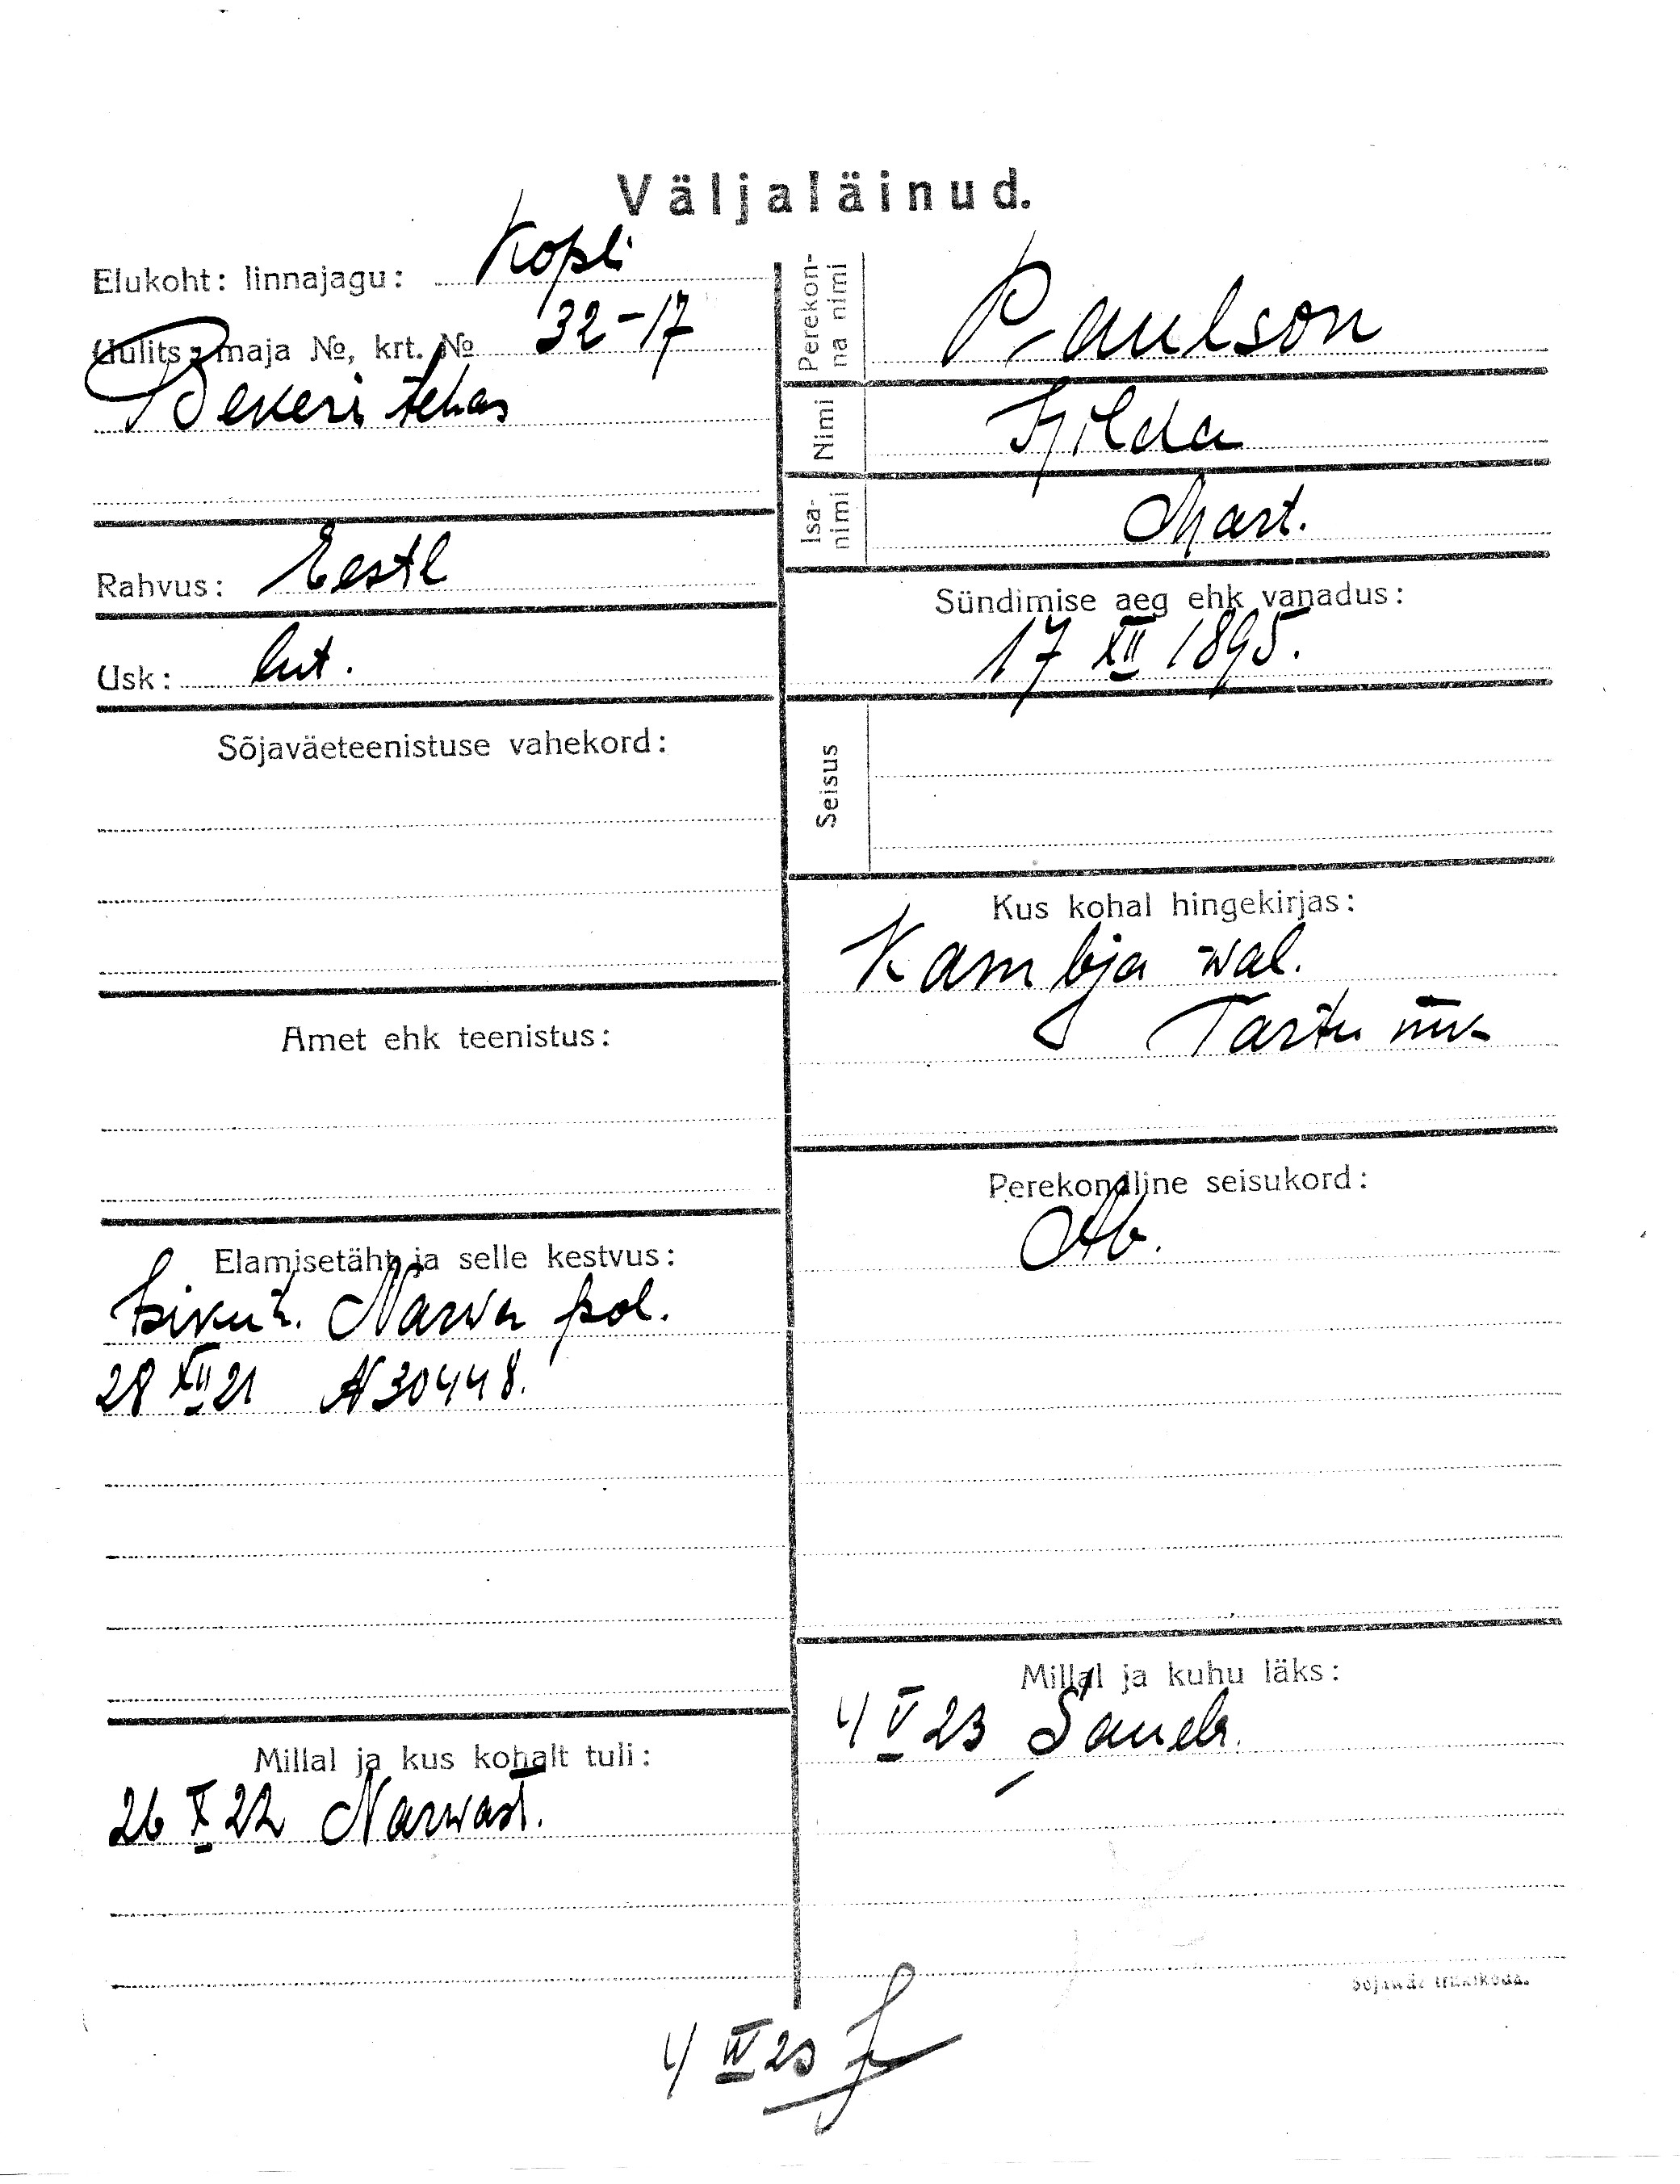 Väljaläinud.
Elukoht: linnajagu: Kopli
Uulits, maja №, krt. № 32-17
Bekeri tehas
Rahvus: Eestl
Usk: lut.
Sõjaväeteenistuse vahekord:
Amet ehk teenistus:
Elamisetäht ja selle kestvus:
Isikut. Narva pol.
28 XII 21 N 30448.
Millal ja kus kohalt tuli:
26 X 22 Narwast.
Perekonna nimi Paulson
Nimi Hilda
Isanimi Mart.
Sündimise aeg ehk vanadus:
17 XII 1895.
Seisus
Kus kohal hingekirjas:
Kambja wal.
Tartu
Perekondline seisukord:
Ab.
Millal ja kuhu läks:
4 V 23
Sõjaväe trükikoda.
4 IV 23